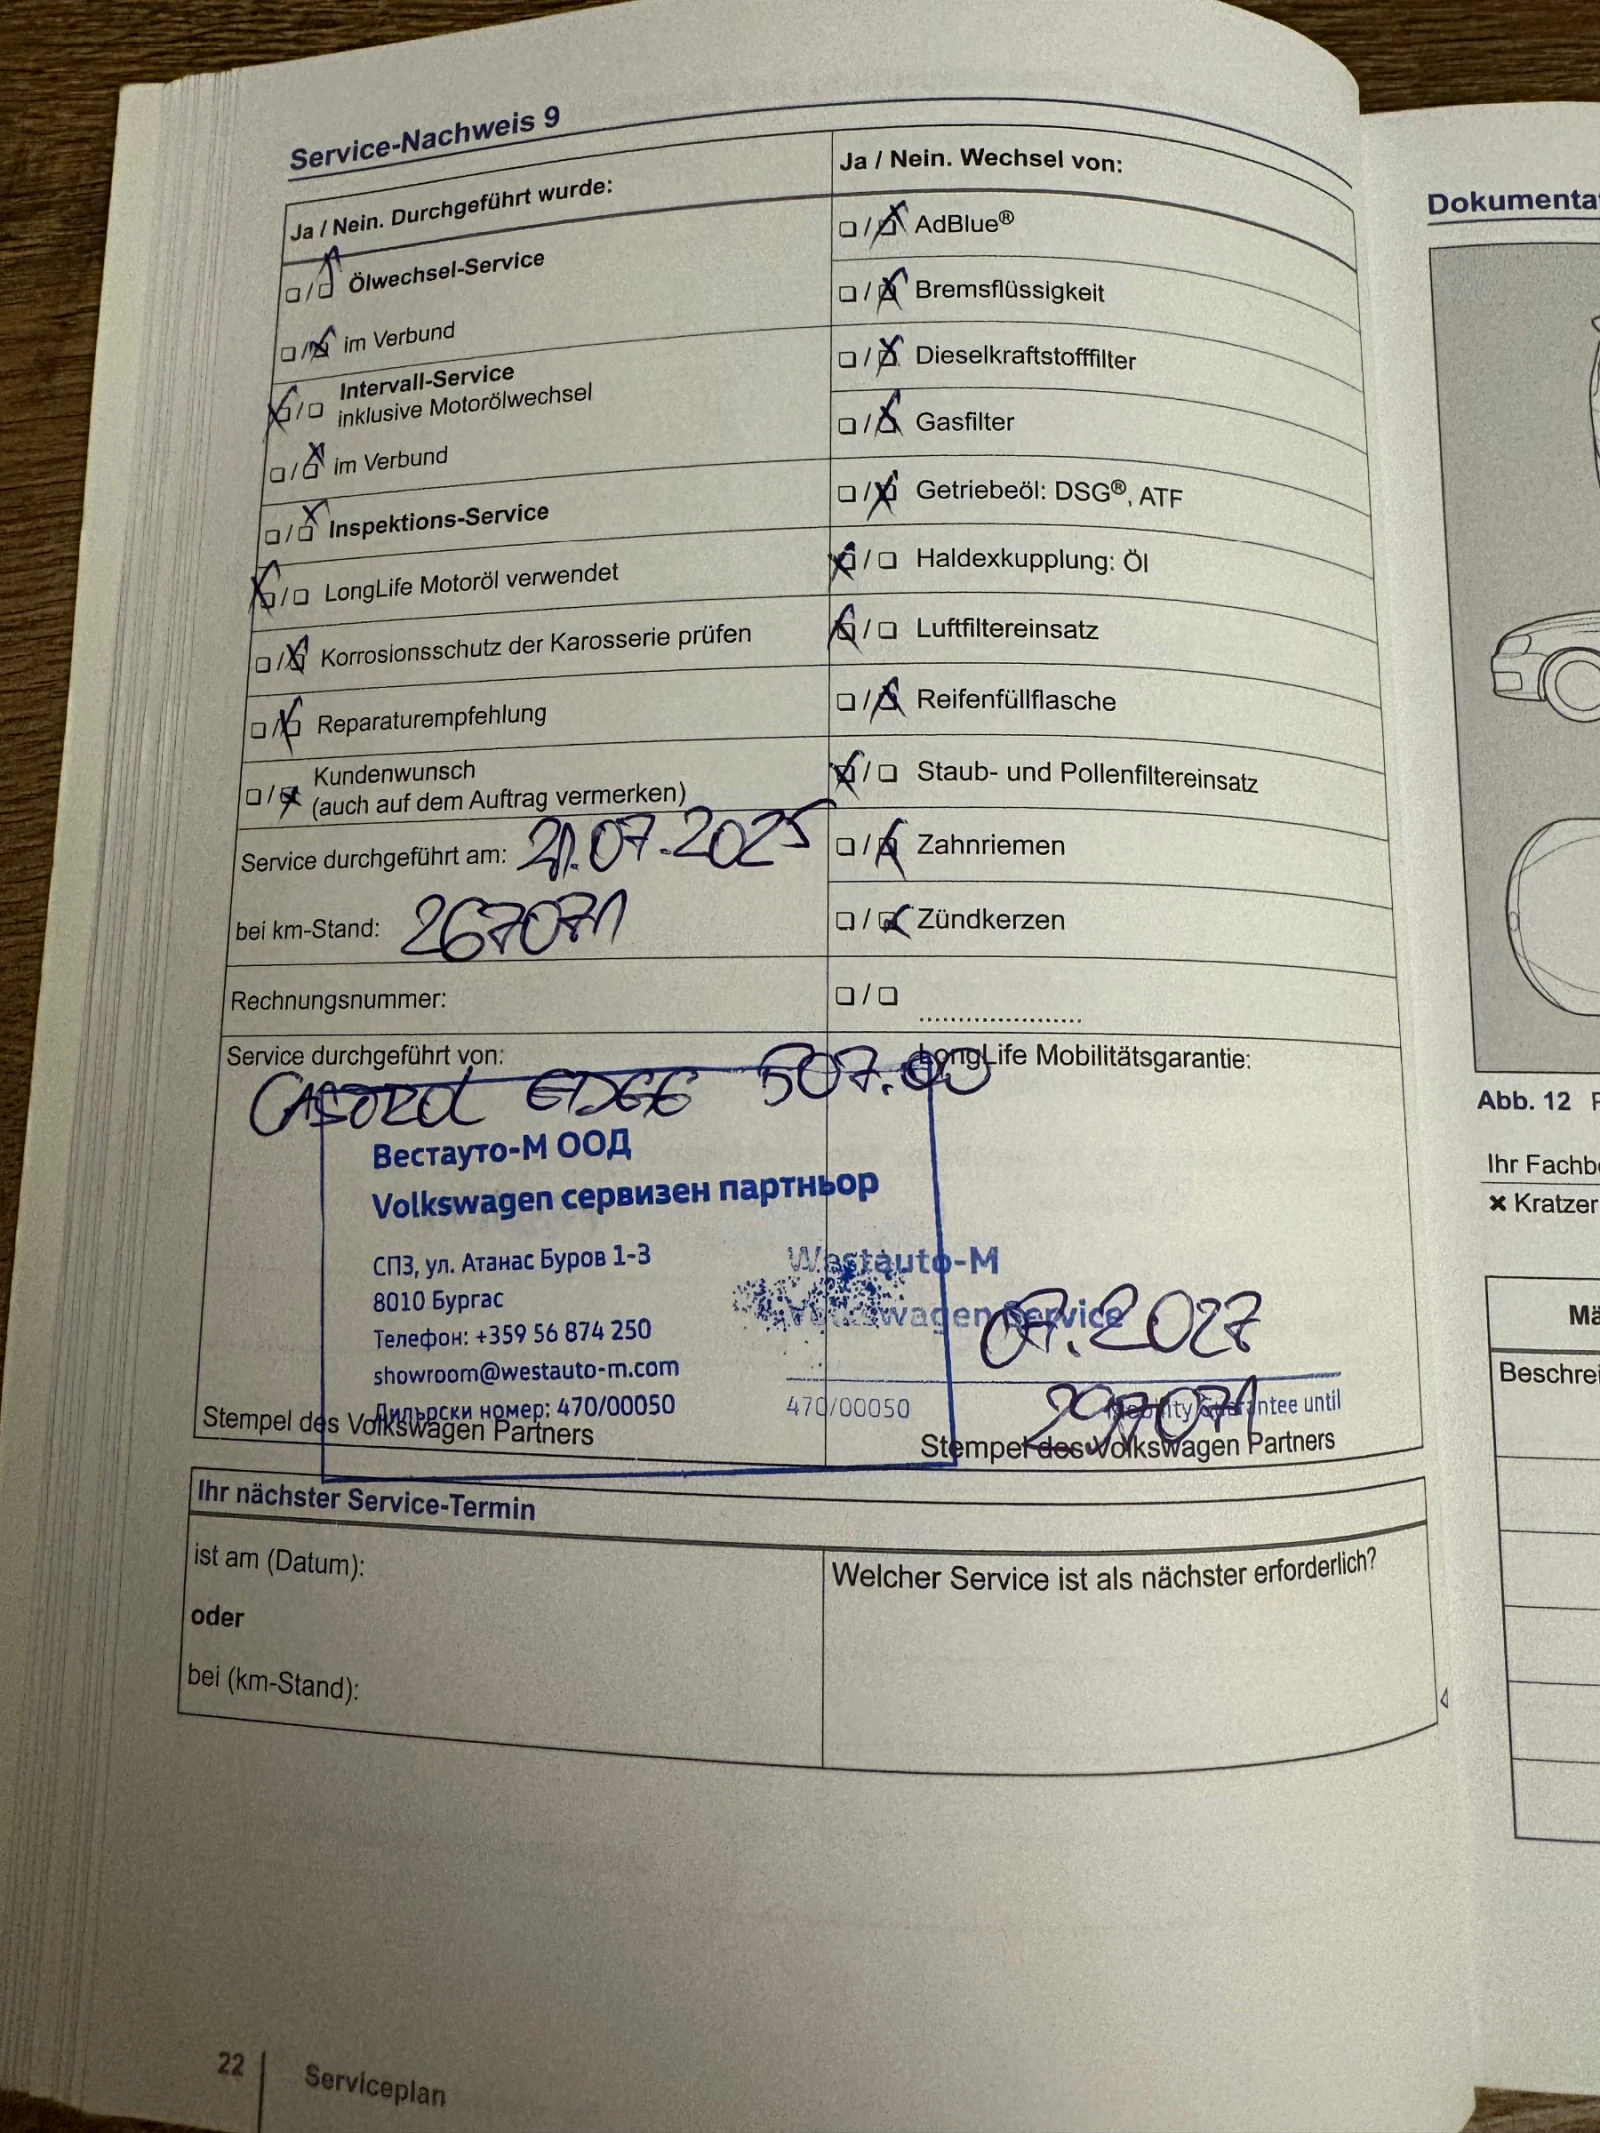 Service-Nachweis 9
Ja / Nein. Durchgeführt wurde:
☐/☒ Ölwechsel-Service
☐/☒ im Verbund
☒/☐ Intervall-Service
inklusive Motorölwechsel
☐/☒ im Verbund
☐/☒ Inspektions-Service
☒/☐ LongLife Motoröl verwendet
☐/☒ Korrosionsschutz der Karosserie prüfen
☐/☒ Reparaturempfehlung
☐/☒ Kundenwunsch
(auch auf dem Auftrag vermerken)
Service durchgeführt am: 21.07.2025
bei km-Stand: 267071
Rechnungsnummer:
Ja / Nein. Wechsel von:
☐/☒ AdBlue®
☐/☒ Bremsflüssigkeit
☐/☒ Dieselkraftstofffilter
☐/☒ Gasfilter
☐/☒ Getriebeöl: DSG®, ATF
☒/☐ Haldexkupplung: Öl
☒/☐ Luftfiltereinsatz
☐/☒ Reifenfüllflasche
☒/☐ Staub- und Pollenfiltereinsatz
☐/☒ Zahnriemen
☐/☒ Zündkerzen
☐/☐ ....................
Service durchgeführt von:
EDGE 507.00
Вестауто-М ООД
Volkswagen сервизен партньор
СПЗ, ул. Атанас Буров 1-3
8010 Бургас
Телефон: +359 56 874 250
showroom@westauto-m.com
Дилърски номер: 470/00050
Stempel des Volkswagen Partners
LongLife Mobilitätsgarantie:
Westauto-M
Volkswagen Service
07.2027
470/00050
Mobility guarantee until
297071
Stempel des Volkswagen Partners
Ihr nächster Service-Termin
ist am (Datum):
oder
bei (km-Stand):
Welcher Service ist als nächster erforderlich?
22
Serviceplan
Abb. 12
Ihr
× Kratzer